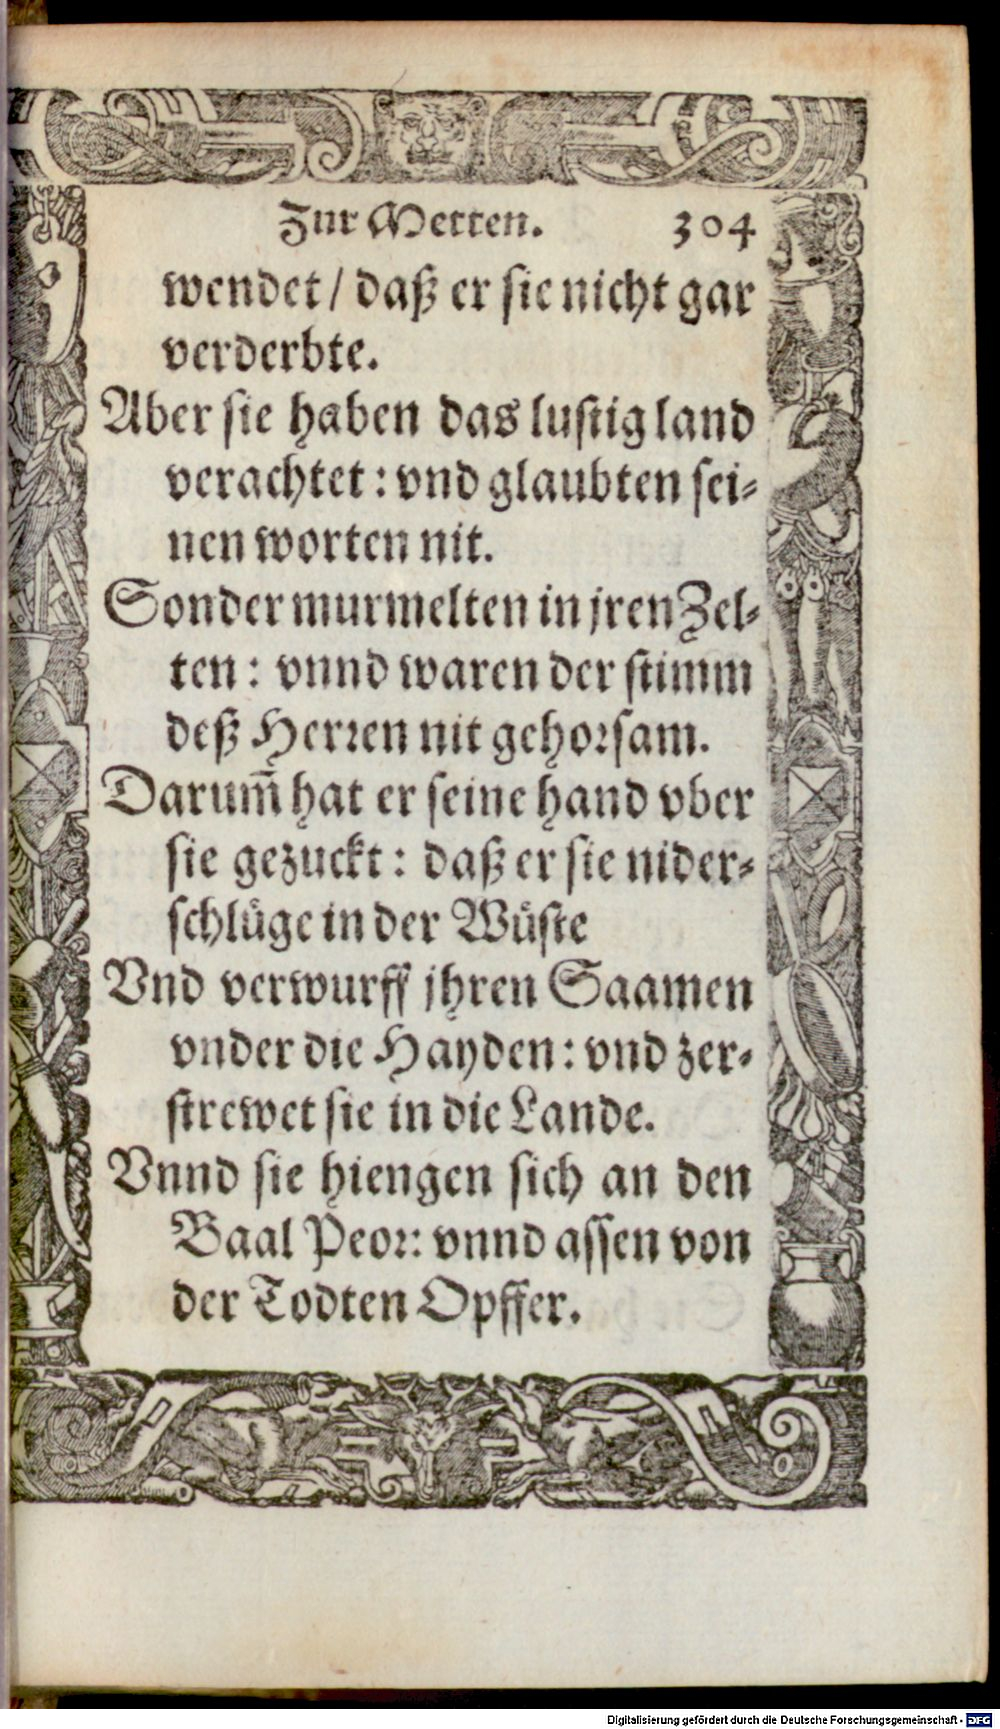 Zur Metten. 304
wendet / daß er sie nicht gar
verderbte.
Aber sie haben das lustig land
verachtet: vnd glaubten sei⸗
nen worten nit.
Sonder murmelten in jren Zel⸗
ten: vnnd waren der stimm
deß Herren nit gehorsam.
Darum̃ hat er seine hand vber
sie gezuckt: daß er sie nider⸗
schlüge in der Wüste
Vnd verwurff jhren Saamen
vnder die Hayden: vnd zer⸗
strewet sie in die Lande.
Vnnd sie hiengen sich an den
Baal Peor: vnnd assen von
der Todten Opffer.
Digitalisierung gefördert durch die Deutsche Forschungsgemeinschaft - DFG